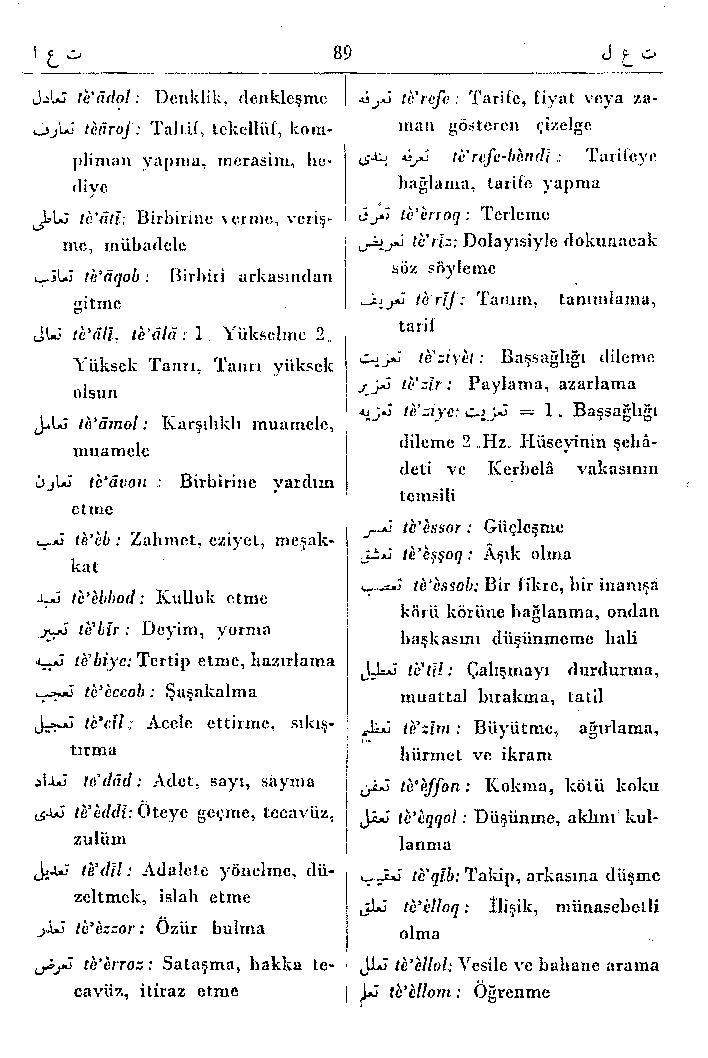 ت ع ا 89 ت ع ل
تعادل tè’âdol : Denklik, denkleşme
تعارف tèârof : Taltif, tekellüf, kom-
pliman yapma, merasim, he-
diye
تعاطی tè’âtî: Birbirine verme, veriş-
me, mübadele
تعاقب tè’âqob : Birbiri arkasından
gitme
تعال tè’âlî, tè’âlâ : 1. Yükselme 2.
Yüksek Tanrı, Tanrı yüksek
olsun
تعامل tè’âmol : Karşılıklı muamele,
muamele
تعاون tè’âvon : Birbirine yardım
etme
تعب tè’èb : Zahmet, eziyet, meşak-
kat
تعبد tè’èbbod : Kulluk etme
تعبیر tè’bîr : Deyim, yorma
تعبیه tè’biye: Tertip etme, hazırlama
تعجب tè’èccob : Şaşakalma
تعجیل tè’cîl ; Acele ettirme, sıkış-
tırma
تعداد te’dâd : Adet, sayı, sayma
تعدی tè’èddî: Öteye geçme, tecavüz,
zulüm
تعدیل tè’dîl : Adalete yönelme, dü-
zeltmek, islah etme
تعذر tè’èzzor : Özür bulma
تعرض tè’èrroz : Sataşma, hakka te-
cavüz, itiraz etme
تعرفه tè’refe : Tarife, fiyat veya za-
man gösteren çizelge
تعرفه بندی tè’refe-bèndî : Tarifeye
bağlama, tarife yapma
تعرق tè’èrroq : Terleme
تعریض tè’rîz: Dolayısiyle dokunacak
söz söyleme
تعریف tè’rîf : Tanım, tanımlama,
tarif
تعزیت tè’ziyèt : Başsağlığı dileme
تعزیر tè’zîr : Paylama, azarlama
تعزیه tè’ziye: تعزیت = 1. Başsağlığı
dileme 2. Hz. Hüseyinin şehâ-
deti ve Kerbelâ vakasının
temsili
تعسر tè’èssor : Güçleşme
تعشق tè’èşşoq : Âşık olma
تعصب tè’èssob: Bir fikre, bir inanışa
körü körüne bağlanma, ondan
başkasını düşünmeme hali
تعطیل tè’tîl : Çalışmayı durdurma,
muattal bırakma, tatil
تعظیم tè’zîm : Büyütme, ağırlama,
hürmet ve ikram
تعفن tè’èffon : Kokma, kötü koku
تعقل tè’èqqol : Düşünme, aklını kul-
lanma
تعقیب tè’qîb: Takip, arkasına düşme
تعلق tè’èlloq : İlişik, münasebetli
olma
تعلل tè’èllol: Vesile ve bahane arama
تعلم tè’èllom : Öğrenme